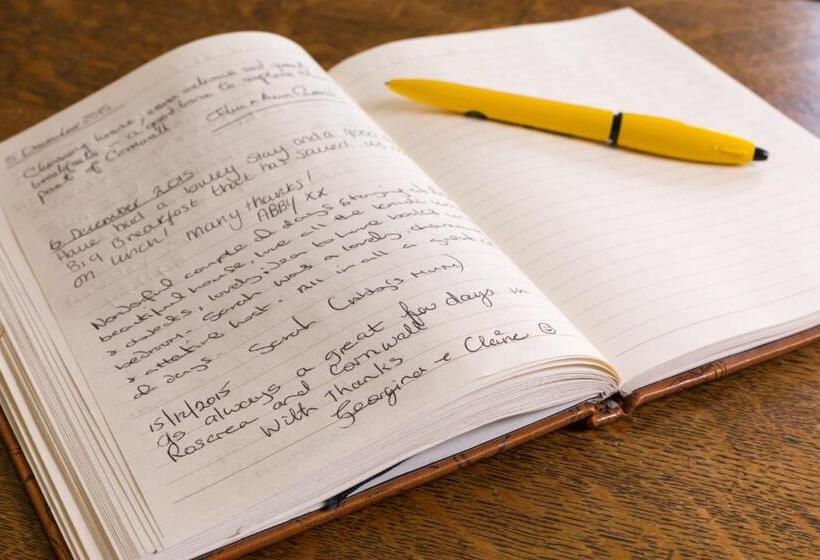 5 December 2015
Charming house, warm welcome and great
breakfasts - a good base to explore this
part of Cornwall
6 December 2015
Have had a lovley stay and a good
Big Breakfast that has saved us
on lunch! many thanks!
ABBY xx
Wonderful couple of days staying at
beautiful house, love all the
bedroom. Sarah was a lovely,
& attentive host. All in all a great
of days. Sarah (Abbys Mum)
15/12/2015
As always a great few days in
Roscrea and Cornwall
With Thanks
Georgina & Claire